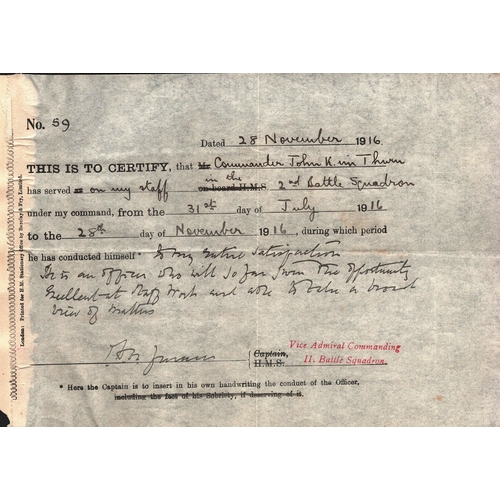 No. 59
Dated 28 November 1916
THIS IS TO CERTIFY, that Mr Commander John K im Thurn
in the
has served as on my staff on board H.M.S. 2nd Battle Squadron
under my command, from the 31st day of July 1916
to the 28th day of November 1916, during which period
he has conducted himself* to my entire satisfaction
He is an officer who will go far given the opportunity
Excellent at Staff Work and able to take a broad
view of matters
Captain, Vice Admiral Commanding
H.M.S. 11. Battle Squadron.
* Here the Captain is to insert in his own handwriting the conduct of the Officer,
including the fact of his Sobriety, if deserving of it.
London: Printed for H.M. Stationery Office by Burrup &